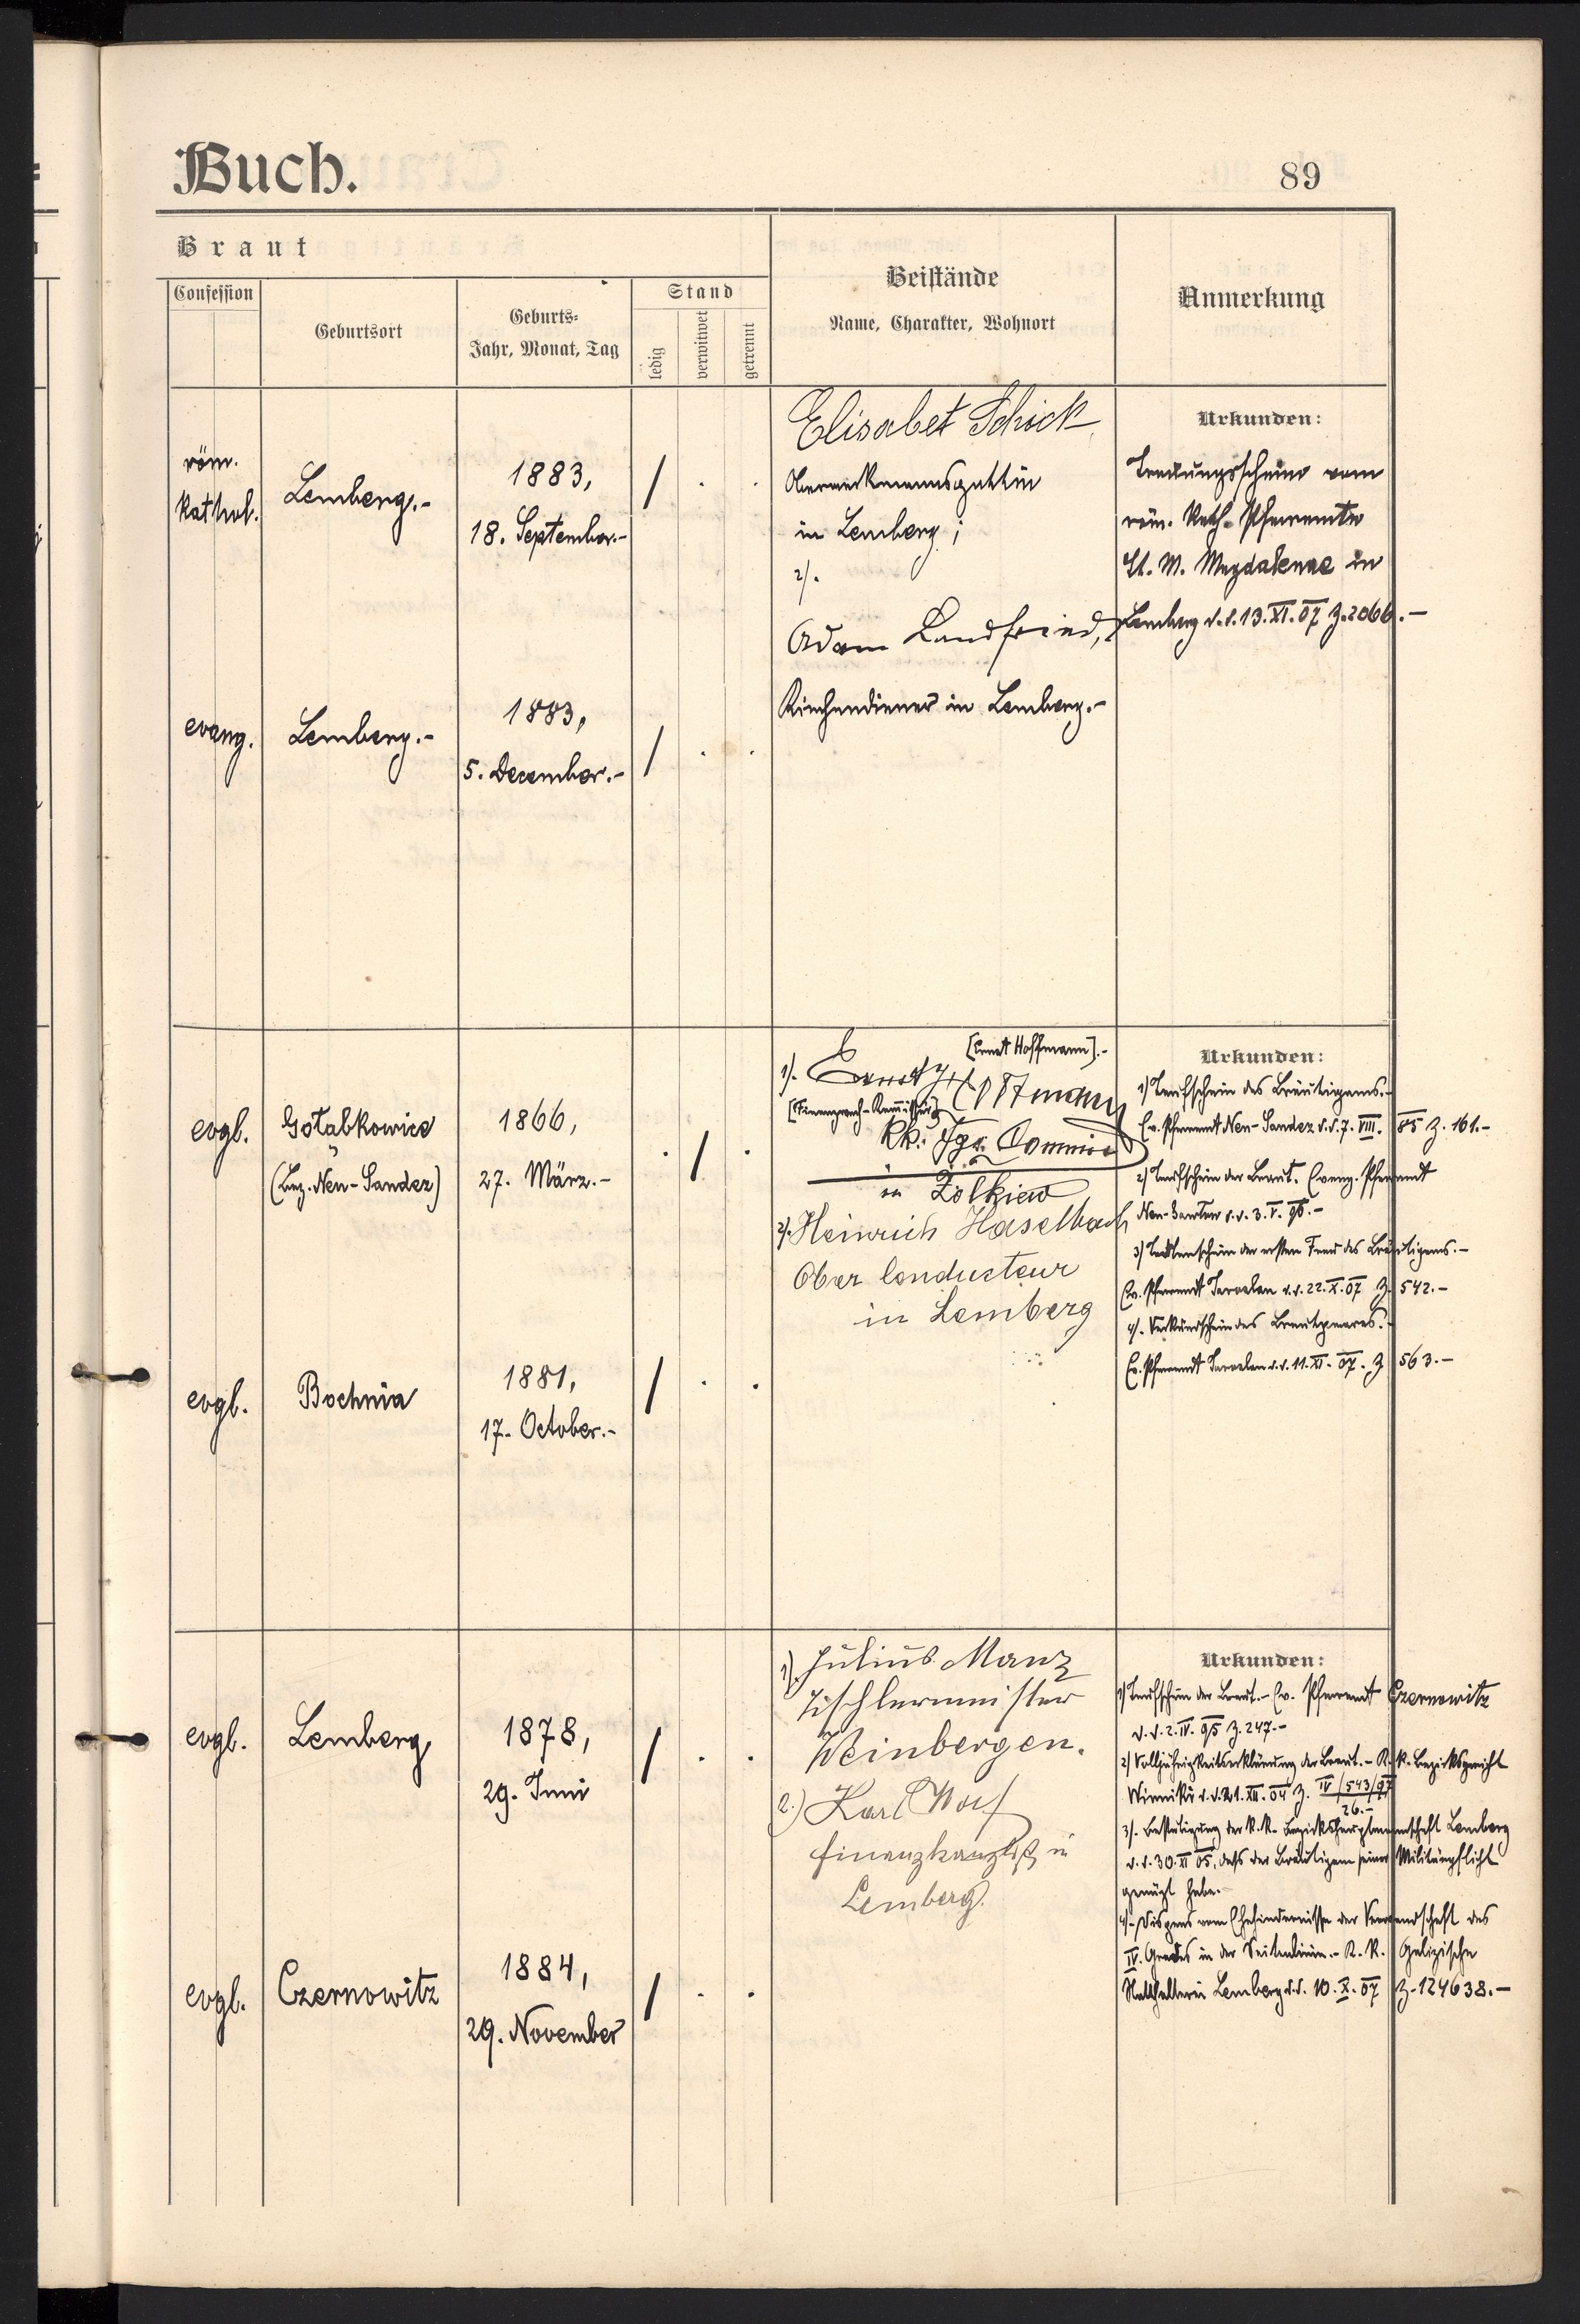 Buch.
89
Braut
Confession
Geburtsort
Geburts-
Jahr, Monat, Tag
Stand
ledig
verwitwet
getrennt
Beistände
Name, Charakter, Wohnort
Anmerkung
röm.
kathol.
Lemberg.-
1883,
18. September.-
Elisabet Schick
in Lemberg;
2).
Adam Landfried,
Kirchendiener in Lemberg.-
Urkunden:
Trauungsschein vom
röm. kath. Pfarramte
St. M. Magdalenae in
Lemberg d.d. 13. XI. 07 Z. 2066.-
evang.
Lemberg.-
1883,
5. December.-
evgl.
Gołąbkowice
(Bez. Neu-Sandez)
1866,
27. März.-
[Ernst Hoffmann].-
1). Ernst Hoffmann
[Finanzwach-Kommissär]
kk. Commissär
in Żółkiew
2). Heinrich Haselbach
Ober Conducteur
in Lemberg
Urkunden:
1) Taufschein des Bräutigams.-
Ev. Pfarramt Neu-Sandez d.d. 7. VIII. 85 Z. 161.-
2) Taufschein der Braut. Evang. Pfarramt
Neu-Sandez d.d. 3. V. 96.-
3) Totenschein der ersten Frau des Bräutigams.-
Ev. Pfarramt Jaroslau d.d. 22. X. 07 Z. 542.-
4). Verkündschein des Brautpaares.-
Ev. Pfarramt Jaroslau d.d. 11. XI. 07. Z 563.-
evgl.
Bochnia
1881,
17. October.-
evgl.
Lemberg
1878,
29. Juni
1). Julius Manz
Tischlermeister
Weinbergen.
2.) Karl
Finanzkanzlist in
Lemberg.
Urkunden:
1) Taufschein der Braut.- Ev. Pfarramt Czernowitz
d.d. 2. IV. 95 Z. 247.-
2) Volljährigkeitserklärung der Braut.- K. k. Bezirksgericht
Winniki d.d. 21. XII. 04 Z. IV/543/97
26.-
3). Bestätigung der k.k. Bezirkshauptmannschaft Lemberg
d.d. 30. XI 05, dass der Bräutigam seiner Militärpflicht
genügt habe.-
4).- Dispens vom Ehehindernisse der Verwandschaft des
IV. Grades in der Seitenlinie.- K. K. Galizische
Statthalterei Lemberg d.d. 10. X. 07 Z. 124638.-
evgl.
Czernowitz
1884,
29. November